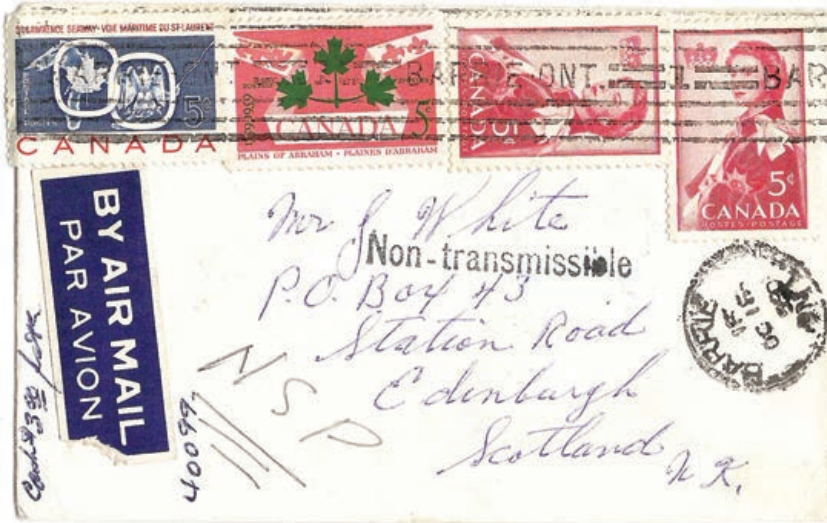 ST. LAWRENCE SEAWAY-VOIE MARITIME DU ST-LAURENT
5¢
CANADA
1759 1959
CANADA 5¢
PLAINS OF ABRAHAM • PLAINES D'ABRAHAM
POSTES-POSTAGE
CANADA
5¢
5¢
CANADA
POSTES-POSTAGE
BARRIE ONT
1
BAR
BY AIR MAIL
PAR AVION
Mr J White
Non-transmissible
P.O. Box 43
Station Road
Edinburgh
Scotland
U.K.
NSP
BARRIE
ONT
OC